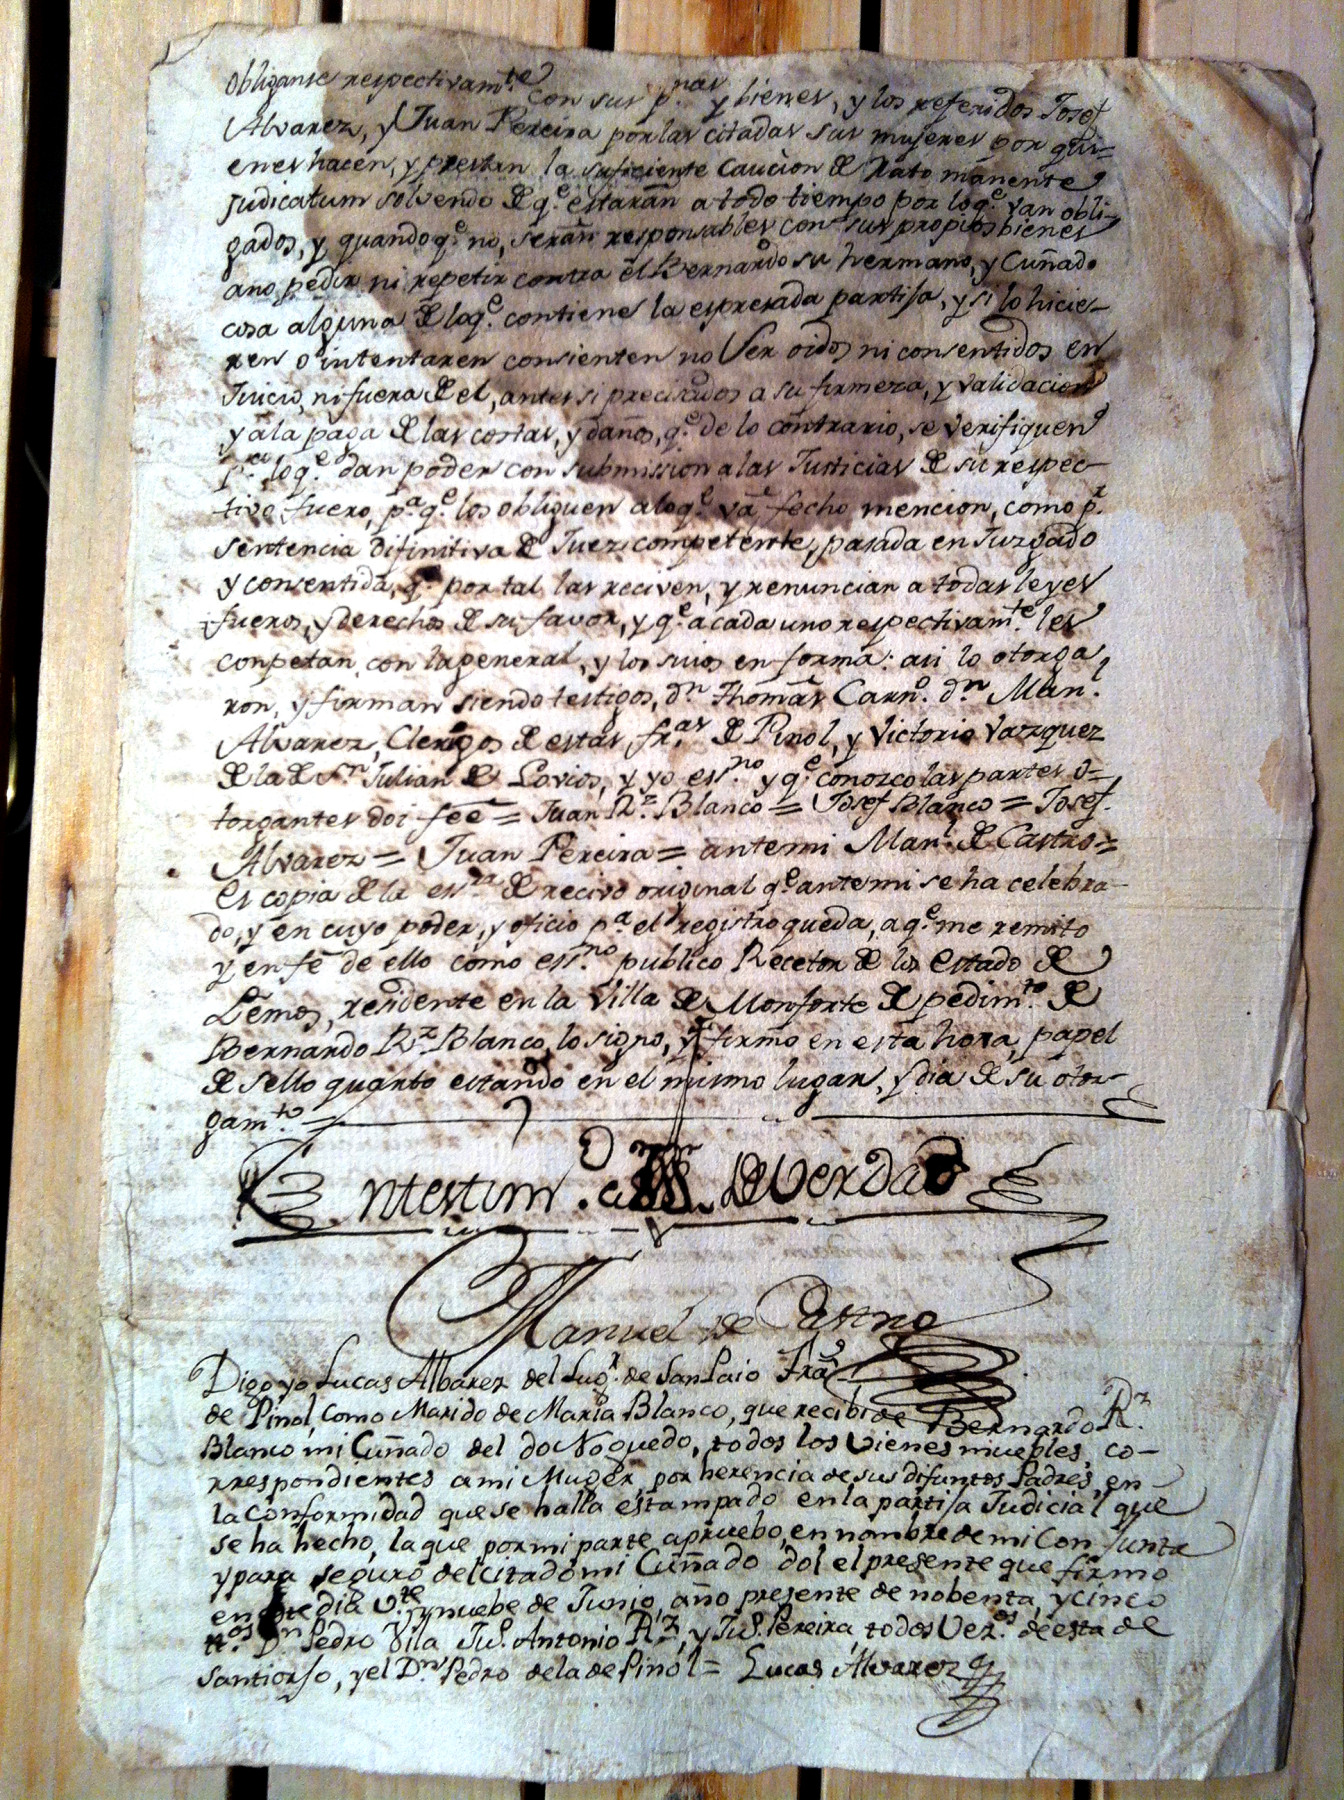 obliganse respectivam.te con sus p.nas y bienes, y los referidos Josef
Alvarez, y Juan Pereira por las citadas sus mujeres por qui=
enes hacen, y prestan la suficiente caucion de Rato manente
Judicatum solvendo de q.e estarán a todo tiempo por loq.e van obli-
gados, y quandoq.e no, serán responsables con sus propios bienes
ano pedir ni repetir contra el Bernardo su hermano, y Cuñado
cosa alguna de loq.e contiene la espresada partija, y si lo hicie-
ren o intentaren consienten no Ser oidos ni consentidos en
Juicio, ni fuera de el, antes si precisados a su firmeza, y validacion
y a la paga de las costas, y daños, q.e de lo contrario, se verifiquen
p.a loq.e dan poder con submission a las Justicias de su respec-
tivo fuero, p.a q.e los obliguen a loq.e va fecho mencion, como p.r
sentencia difinitiva de Juez competente, pasada en Juzgado
y consentida, q.e por tal las reciven, y renuncian a todas leyes
fueros, y derechos de su favor, y q.e a cada uno respectivam.te les
conpetan, con la general, y los suios en forma: asi lo otorga
ron, y firman siendo testigos, d.n Thomás Carn.o d.n Man.l
Alvarez, Clerigos de estas fr.as de Pinol, y Victorio Vazquez
de la de S.n Julian de Lovios, y yo ess.no y q.e conozco las partes o=
torgantes doi feé = Juan R.z Blanco = Josef Blanco = Josef.
Alvarez = Juan Pereira = antemi Man.l de Castro =
Es copia de la ess.ra de recivo original q.e antemi se ha celebra-
do, y en cuyo poder, y oficio p.a el registro queda, a q.e me remito
y en fé de ello como ess.no publico Recetor de los estado de
Lemos, residente en la Villa de Monforte de pedim.to de
Bernardo R.z Blanco, lo signo, y firmo en esta hora, papel
de sello quarto estando en el mismo lugar, y dia de su otor-
gam.to =
Entestim.o de Verdad
Manuel de Castro
Digo yo Lucas Albarez del Lug.r de San Paio Fra.
de Pinol, como Marido de Maria Blanco, que recibi de Bernardo R.z
Blanco mi Cuñado del do Noguedo, todos los vienes muebles, co-
rrespondientes a mi Muger, por herencia de sus difuntos Padres, en
la conformidad que se halla estampado en la partija Judicial que
se ha hecho, la que por mi parte apruebo, en nombre de mi Conjunta
y para seguro del citado mi Cuñado doi el presente que firmo
en este dia v.te y nuebe de Junio, año presente de nobenta, y cinco
t.os D.n Pedro Vila Ju.o Antonio R.z, y Ju.o Pereira, todos Vez.os de esta de
Santiorjo, y el D.n Pedro de la de Pinol = Lucas Alvarez